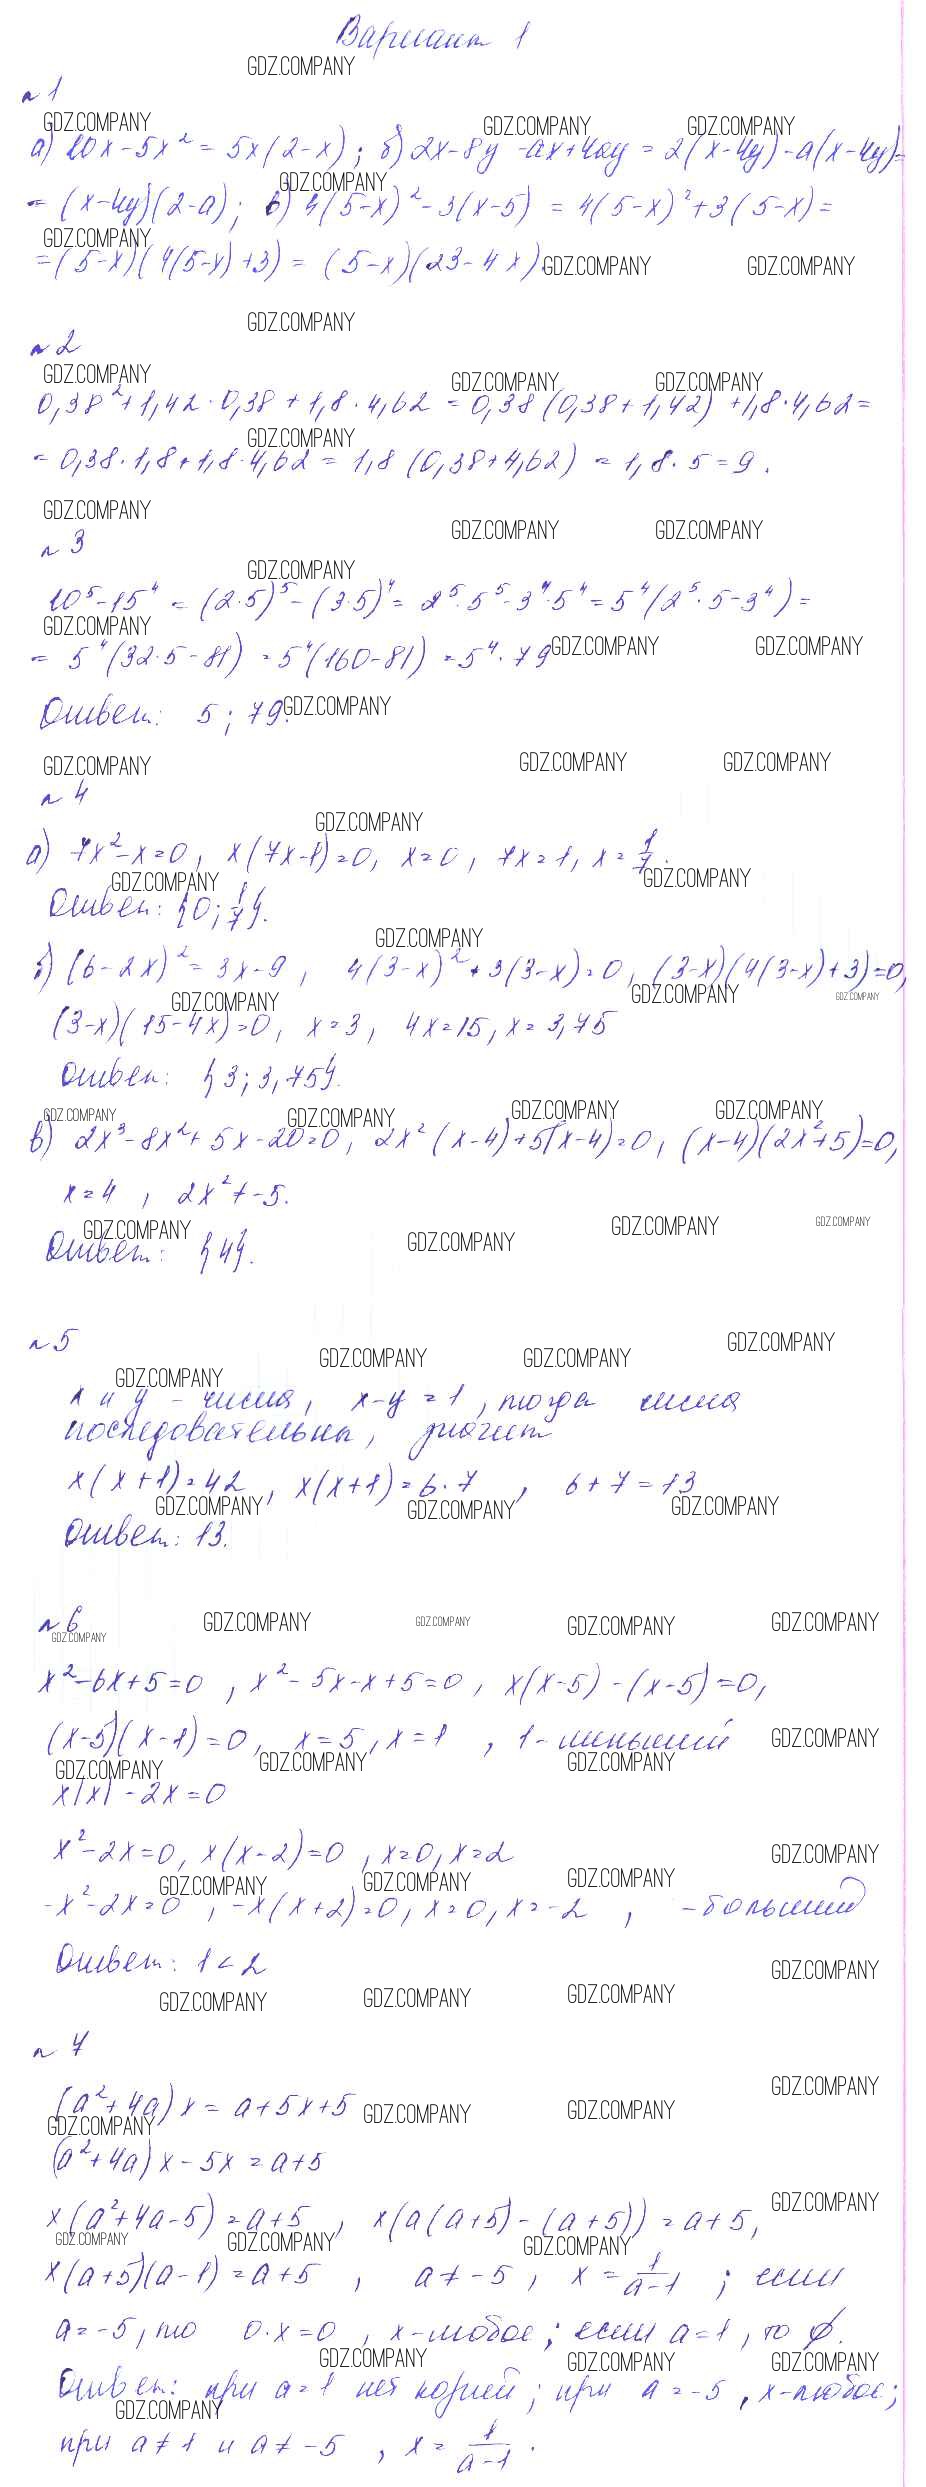 Вариант 1
GDZ.COMPANY
№1
GDZ.COMPANY GDZ.COMPANY GDZ.COMPANY
а) 10x-5x² = 5x(2-x); б) 2x-8y-ax+4ay = 2(x-4y)-a(x-4y)=
GDZ.COMPANY
= (x-4y)(2-a); в) 4(5-x)²-3(x-5) = 4(5-x)²+3(5-x)=
GDZ.COMPANY
=(5-x)(4(5-x)+3) = (5-x)(23-4x). GDZ.COMPANY GDZ.COMPANY
GDZ.COMPANY
№2
GDZ.COMPANY GDZ.COMPANY GDZ.COMPANY
0,38²+1,42·0,38+1,8·4,62 = 0,38(0,38+1,42)+1,8·4,62=
GDZ.COMPANY
= 0,38·1,8+1,8·4,62 = 1,8(0,38+4,62) = 1,8·5=9.
GDZ.COMPANY GDZ.COMPANY GDZ.COMPANY
№3
GDZ.COMPANY
10⁵-15⁴ = (2·5)⁵-(3·5)⁴ = 2⁵·5⁵-3⁴·5⁴ = 5⁴(2⁵·5-3⁴) =
GDZ.COMPANY
= 5⁴(32·5-81) = 5⁴(160-81) = 5⁴·79 GDZ.COMPANY GDZ.COMPANY
Ответ: 5; 79. GDZ.COMPANY
GDZ.COMPANY GDZ.COMPANY GDZ.COMPANY
№4
GDZ.COMPANY
а) 7x²-x=0, x(7x-1)=0, x=0, 7x=1, x=1/7.
GDZ.COMPANY GDZ.COMPANY
Ответ: {0; 1/7}.
GDZ.COMPANY
б) (6-2x)²=3x-9, 4(3-x)²+3(3-x)=0, (3-x)(4(3-x)+3)=0,
GDZ.COMPANY GDZ.COMPANY GDZ.COMPANY
(3-x)(15-4x)=0, x=3, 4x=15, x=3,75
Ответ: {3; 3,75}.
GDZ.COMPANY GDZ.COMPANY GDZ.COMPANY GDZ.COMPANY
в) 2x³-8x²+5x-20=0, 2x²(x-4)+5(x-4)=0, (x-4)(2x²+5)=0,
x=4, 2x²≠-5.
GDZ.COMPANY GDZ.COMPANY GDZ.COMPANY GDZ.COMPANY
Ответ: {4}.
№5
GDZ.COMPANY GDZ.COMPANY GDZ.COMPANY GDZ.COMPANY
x и y - числа, x-y=1, тогда числа
последовательны, значит
x(x+1)=42, x(x+1)=6·7, 6+7=13
GDZ.COMPANY GDZ.COMPANY GDZ.COMPANY
Ответ: 13.
№6
GDZ.COMPANY GDZ.COMPANY GDZ.COMPANY GDZ.COMPANY GDZ.COMPANY
x²-6x+5=0, x²-5x-x+5=0, x(x-5)-(x-5)=0,
(x-5)(x-1)=0, x=5, x=1, 1-меньший GDZ.COMPANY
GDZ.COMPANY GDZ.COMPANY GDZ.COMPANY
x|x|-2x=0
x²-2x=0, x(x-2)=0, x=0, x=2 GDZ.COMPANY
GDZ.COMPANY GDZ.COMPANY GDZ.COMPANY
-x²-2x=0, -x(x+2)=0, x=0, x=-2, -больший
Ответ: 1<2 GDZ.COMPANY
GDZ.COMPANY GDZ.COMPANY GDZ.COMPANY
№7
(a²+4a)x = a+5x+5 GDZ.COMPANY GDZ.COMPANY GDZ.COMPANY
GDZ.COMPANY
(a²+4a)x-5x=a+5
x(a²+4a-5)=a+5, x(a(a+5)-(a+5))=a+5, GDZ.COMPANY
GDZ.COMPANY GDZ.COMPANY GDZ.COMPANY
x(a+5)(a-1)=a+5, a≠-5, x=1/(a-1); если
a=-5, то 0·x=0, x-любое; если a=1, то ∅.
GDZ.COMPANY GDZ.COMPANY GDZ.COMPANY
Ответ: при a=1 нет корней; при a=-5, x-любое;
GDZ.COMPANY
при a≠1 и a≠-5, x=1/(a-1).